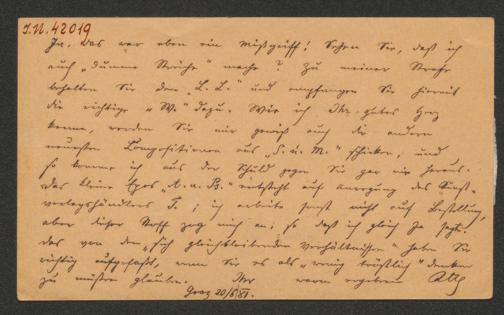 I.N. 42019
Ja, das war eben ein Mißgriff! Sehen Sie, daß ich
auch „dumme Streiche" mache? Zu meiner Strafe
behalten Sie den „L. L." und empfangen Sie hiermit
die richtige „W." dazu. Wie ich Ihr gutes Herz
kenne, werden Sie mir gewiß auch die andern
neuesten Compositionen aus „S. u. M." schicken, und
so komme ich aus der Schuld gegen Sie gar nie heraus.
Das kleine Epos „A. a. B." entsteht auf Anregung des
verlagshändlers T.; ich arbeite sonst nicht auf Bestellung,
aber dieser Stoff zog mich an, so daß ich gleich Ja sagte.
Das von den „sich gleichbleibenden Verhältnissen" haben Sie
richtig aufgefaßt, wenn Sie es als „wenig tröstlich" denken
zu müssen glauben. Ihr warm ergebener
Graz 20/5 81.